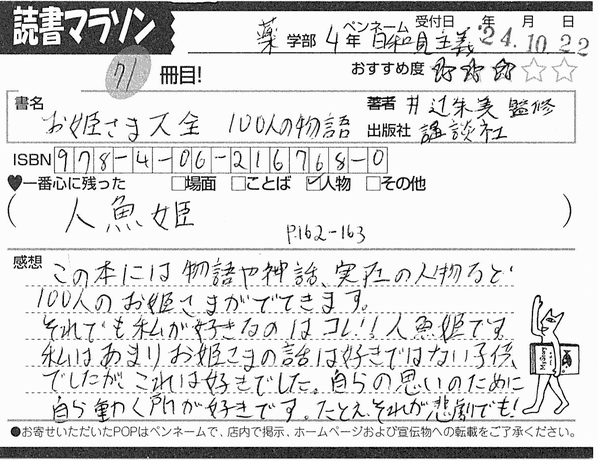 読書マラソン
薬 学部 4年 ペンネーム 日和見主義 受付日 '24年 10月 22日
71 冊目!
おすすめ度 ★★★☆☆
書名 お姫さま大全 100人の物語
著者 井辻朱美 監修
出版社 講談社
ISBN 978-4-06-216768-0
♥一番心に残った □場面 □ことば ☑人物 □その他
(人魚姫 P.162-163)
感想 この本には物語や神話、実在の人物など
100人のお姫さまがでてきます。
それでも私が好きなのはコレ!!人魚姫です。
私はあまりお姫さまの話は好きではない子供
でしたが、これは好きでした。自らの思いのために
自ら動く所が好きです。たとえそれが悲劇でも!
●お寄せいただいたPOPはペンネームで、店内で掲示、ホームページおよび宣伝物への転載をご了承ください。